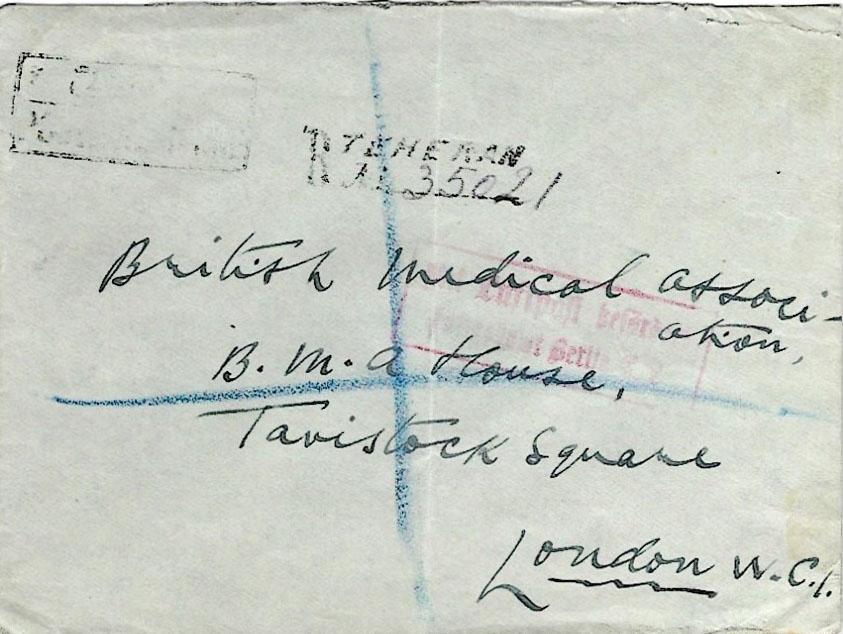 R TEHERAN
№ 35021
British Medical Associ-
ation,
B.M.A House,
Tavistock Square
London W.C.1.
Luftpost beförd
Berlin